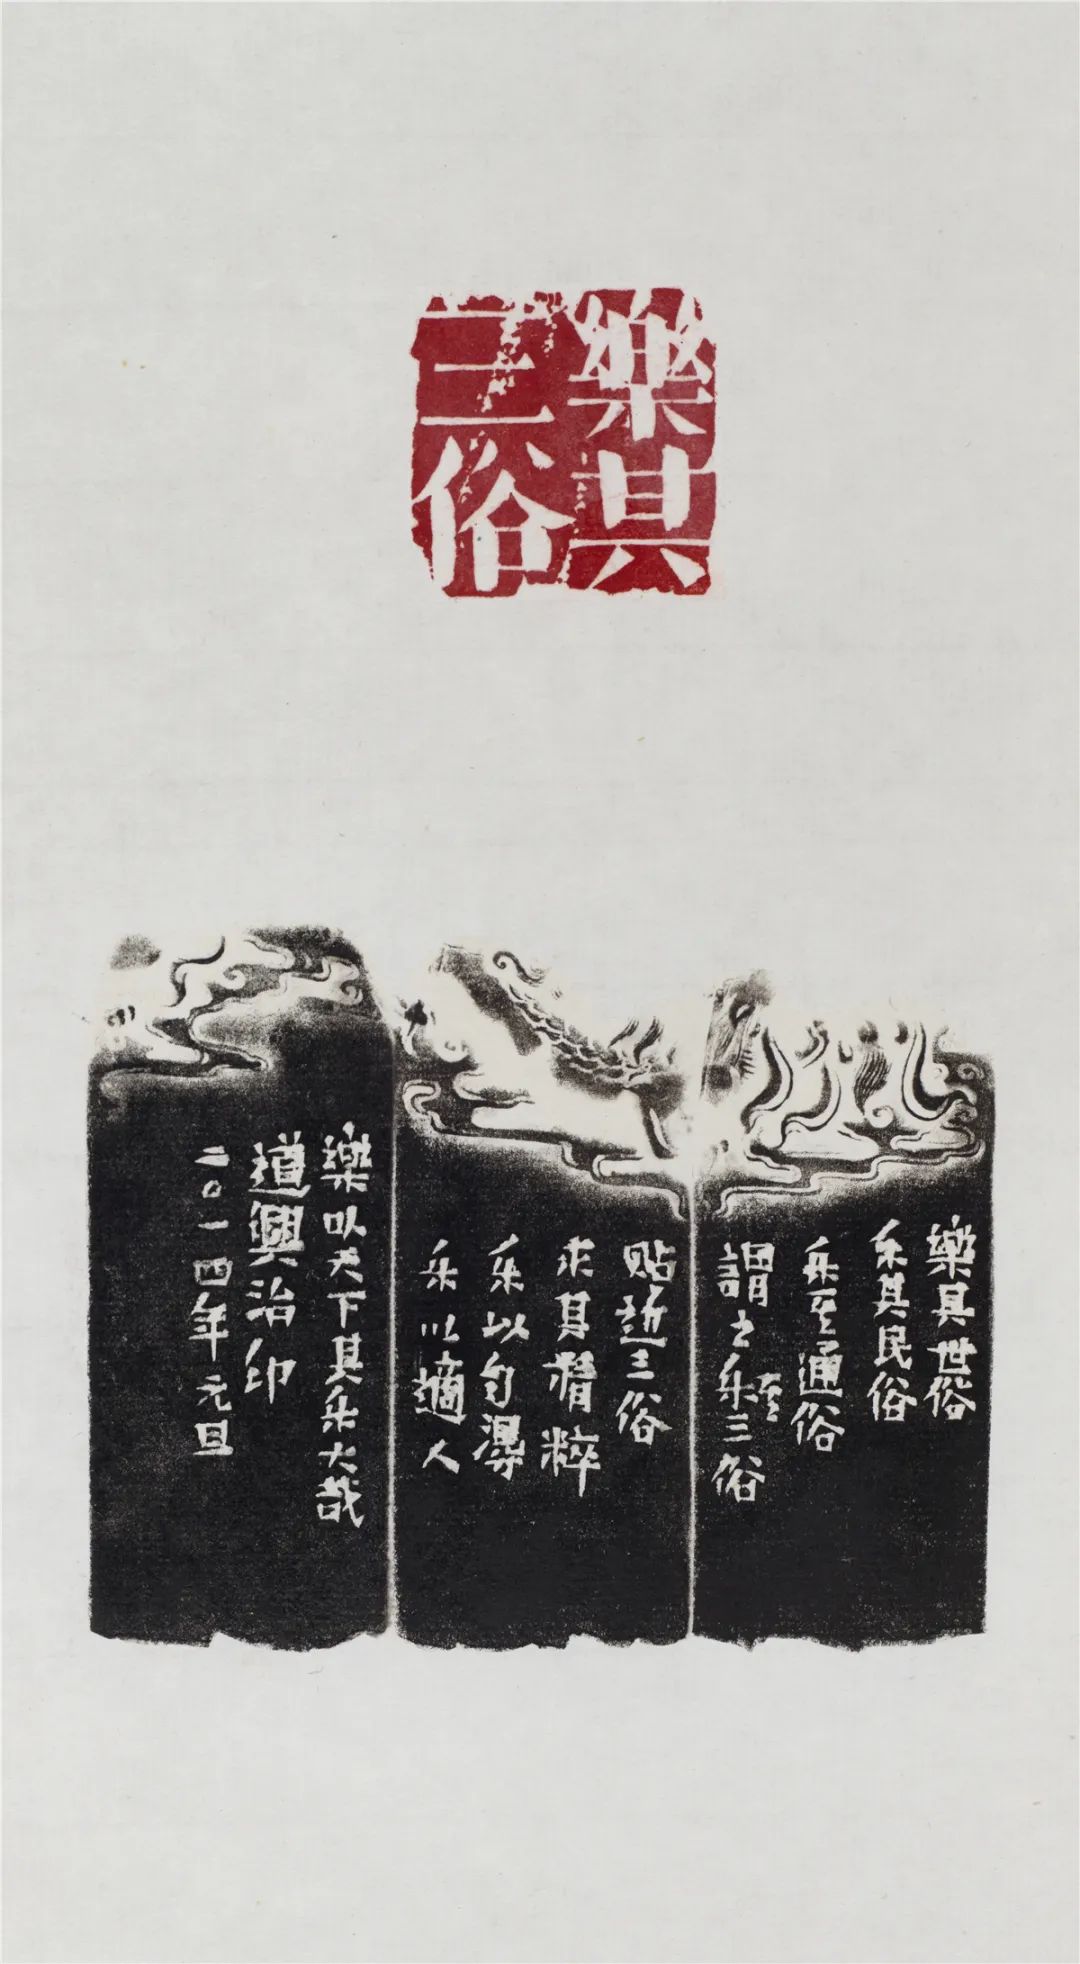 樂其
三俗
樂其世俗
乐其民俗
乐至通俗
謂之乐三俗
贴近三俗
求其精粹
乐以自
乐以適人
樂以天下其乐大哉
道興治印
二〇一四年元旦